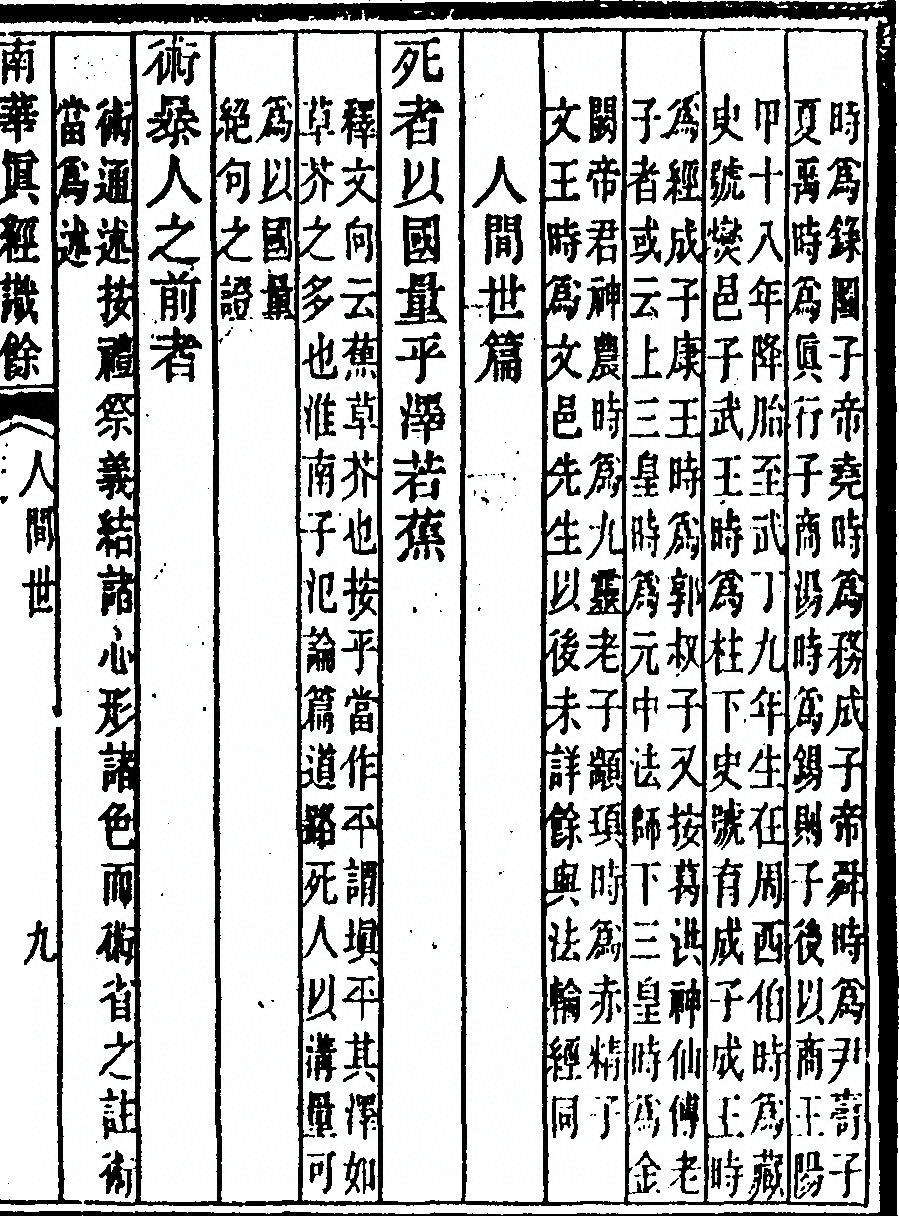 時爲錄圖子帝堯時爲務成子帝舜時爲尹壽子
夏禹時爲眞行子商湯時爲錫則子後以商王陽
甲十八年降胎至武丁九年生在周西伯時爲藏
史號爕邑子武王時爲柱下史號有成子成王時
爲經成子康王時爲郭叔子又按葛洪神仙傳老
子者或云上三皇時爲元中法師下三皇時爲金
闕帝君神農時爲九靈老子顓頊時爲赤精子
文王時爲文邑先生以後未詳餘與法輪經同
人間世篇
死者以國量乎澤若蕉
釋文向云蕉草芥也按乎當作平謂塡平其澤如
草芥之多也淮南子氾論篇道路死人以溝量可
爲以國量
絕句之證
術暴人之前者
術通述按禮祭義結諸心形諸色而術省之註術
當爲述
南華眞經識餘
人間世
九